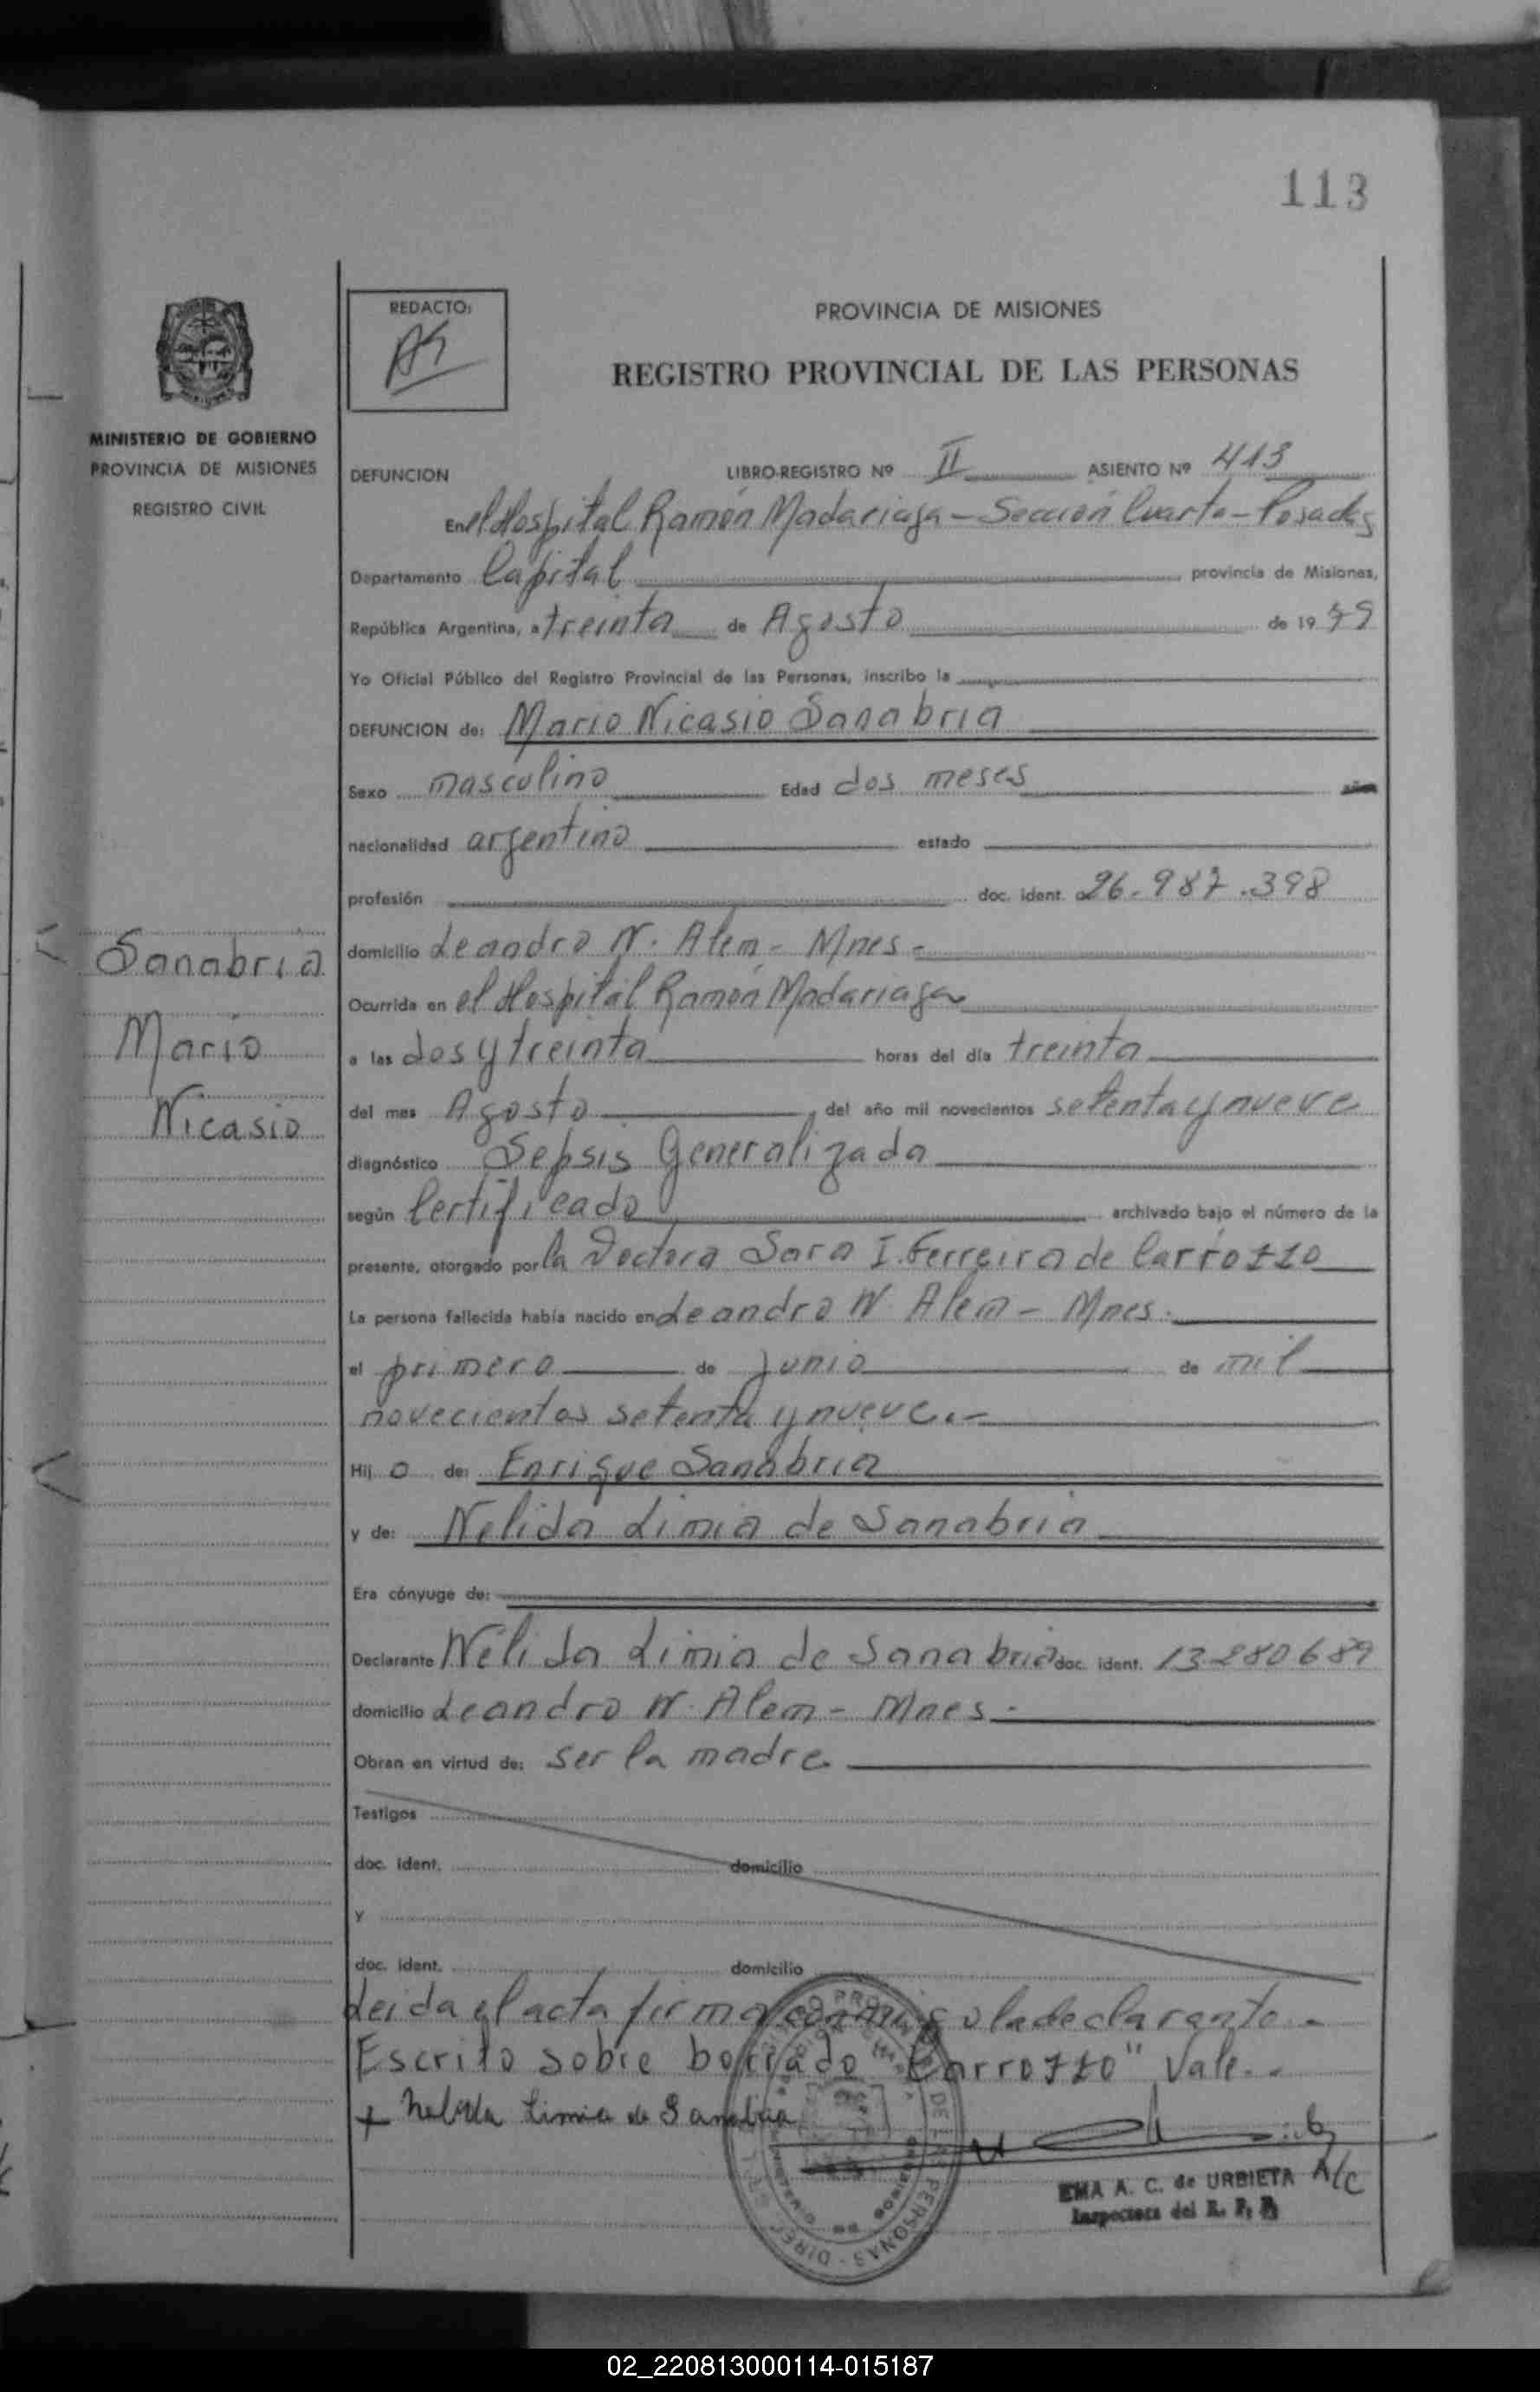 113
REDACTO:
PROVINCIA DE MISIONES
REGISTRO PROVINCIAL DE LAS PERSONAS
MINISTERIO DE GOBIERNO
PROVINCIA DE MISIONES
REGISTRO CIVIL
DEFUNCION LIBRO-REGISTRO Nº II ASIENTO Nº 413
En el Hospital Ramón Madariaga - Sección Cuarta - Posadas
Departamento Capital provincia de Misiones,
República Argentina, a treinta de Agosto de 1979
Yo Oficial Público del Registro Provincial de las Personas, inscribo la
DEFUNCION de: Mario Nicasio Sanabria
Sexo masculino Edad dos meses años
nacionalidad argentino estado
profesión doc. ident. 26.987.398
Sanabria
Mario
Nicasio
domicilio Leandro N. Alem - Mnes -
Ocurrida en el Hospital Ramón Madariaga
a las dos y treinta horas del día treinta
del mes Agosto, del año mil novecientos setenta y nueve
diagnóstico Sepsis Generalizada
según Certificado archivado bajo el número de la
presente, otorgado por la Doctora Sara I. Ferreira de Carrozzo
La persona fallecida había nacido en Leandro N. Alem - Mnes.
el primero de junio de mil
novecientos setenta y nueve.-
Hij o de: Enrique Sanabria
y de: Nelida Limia de Sanabria
Era cónyuge de:
Declarante Nélida Limia de Sanabria doc. ident. 13280689
domicilio Leandro N. Alem - Mnes -
Obran en virtud de: ser la madre
Testigos
doc. ident. domicilio
y
doc. ident. domicilio
Leida el acta firma conmigo la declarante.-
Escrito sobre borrado "Carrozzo" Vale.-
+ Nelida Limia de Sanabria
EMA A. C. de URBIETA A/C
Inspectora del R. P. P.
02_220813000114-015187